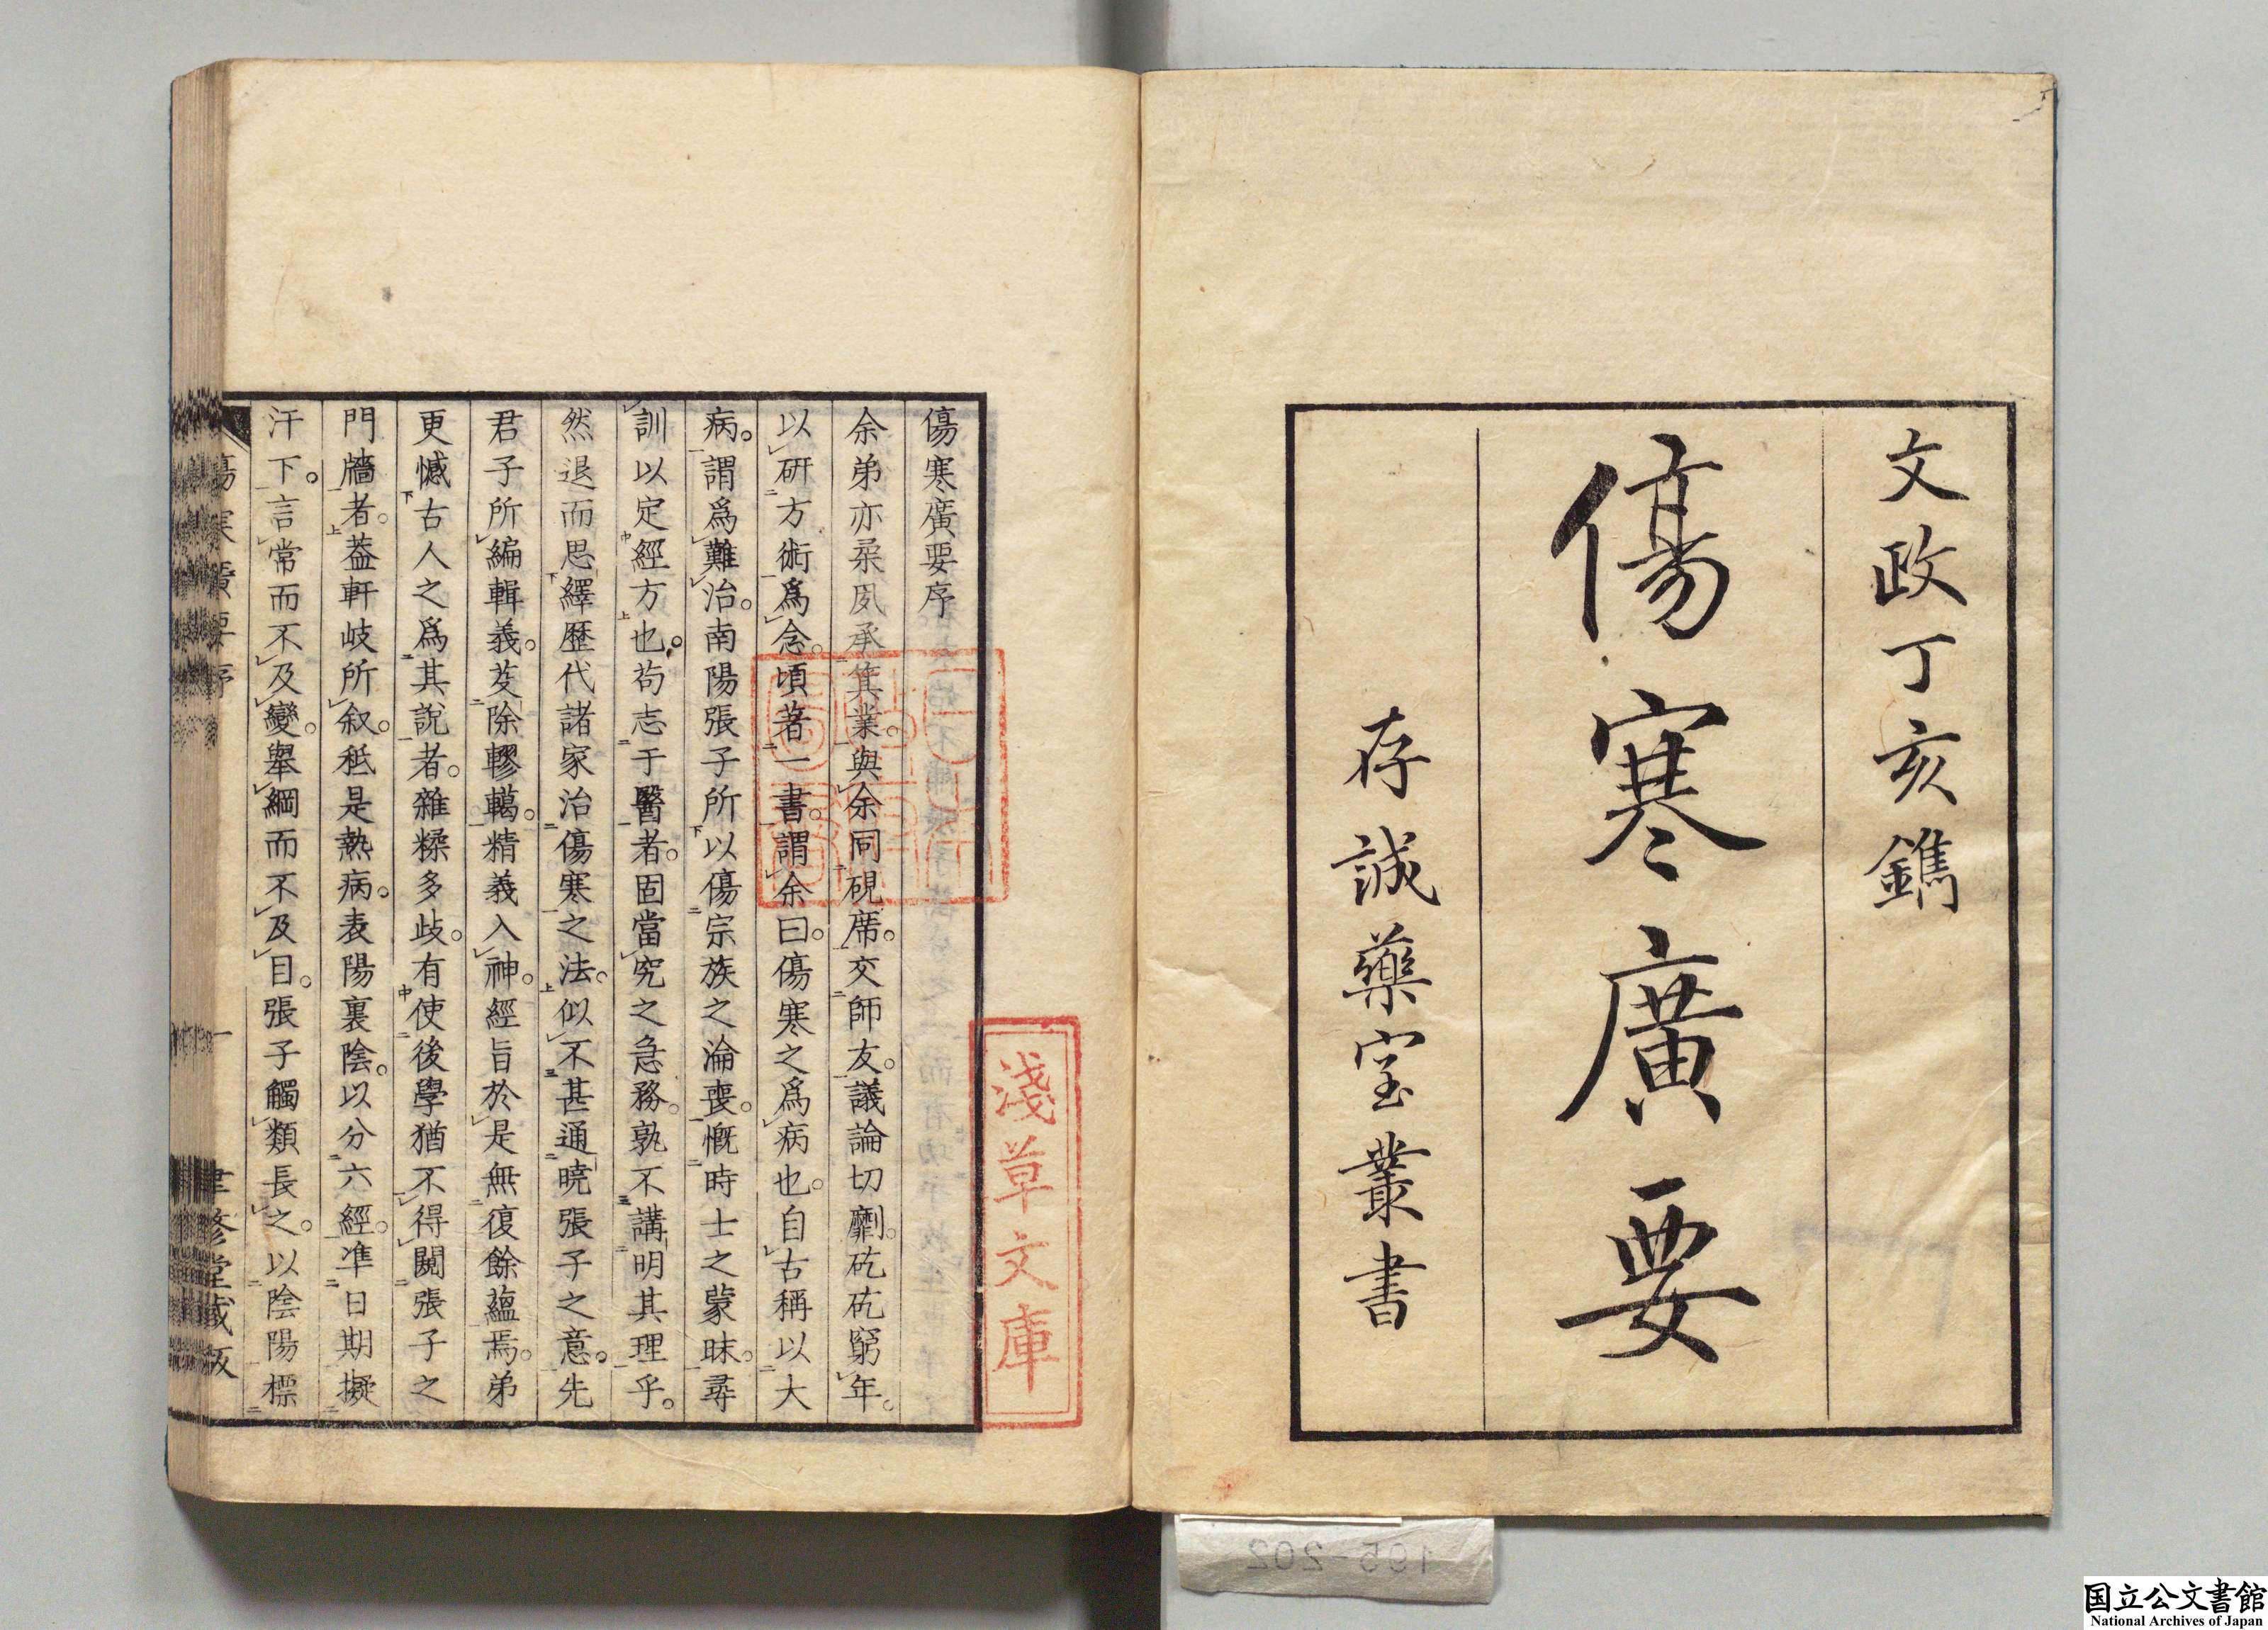 文政丁亥鐫
傷寒廣要
存誠藥室叢書
傷寒廣要序
余弟亦柔夙承箕業。與余同硯席。交師友。議論切劘。矻矻窮年。
以研方術爲念。頃著一書。謂余曰。傷寒之爲病也。自古稱以大
病。謂爲難治。南陽張子所以傷宗族之淪喪。慨時士之蒙昧。尋
訓以定經方也。苟志于醫者。固當究之急務。孰不講明其理乎。
然退而思繹歷代諸家治傷寒之法。似不甚通曉張子之意。先
君子所編輯義。芟除轇轕。精義入神。經旨於是無復餘蘊焉。弟
更憾古人之爲其說者。雜糅多歧。有使後學猶不得闚張子之
門牆者。蓋軒岐所叙。秪是熱病。表陽裏陰。以分六經。準日期擬
汗下。言常而不及變。舉綱而不及目。張子觸類長之。以陰陽標
傷寒廣要序
一
聿修堂藏版
淺草文庫
195-202
国立公文書館
National Archives of Japan